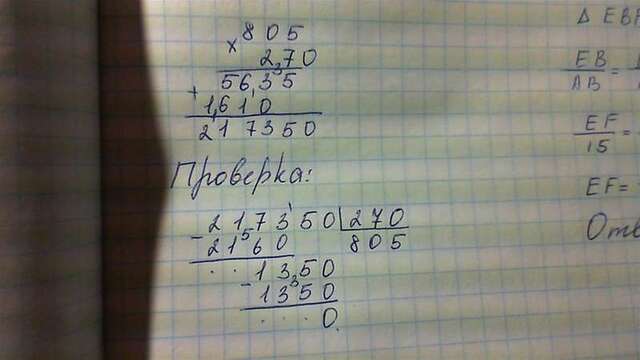 805
× 270
5635
+ 1610
217350
Проверка:
- 217350 | 270
2160 805
1350
- 1350
0
Δ EB
EB
AB =
EF
15 =
EF =